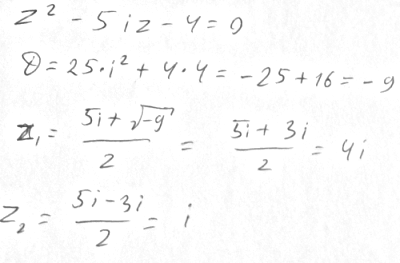 z² - 5iz - 4 = 0
D = 25·i² + 4·4 = -25 + 16 = -9
z₁ = (5i + √-9)/2 = (5i + 3i)/2 = 4i
z₂ = (5i - 3i)/2 = i